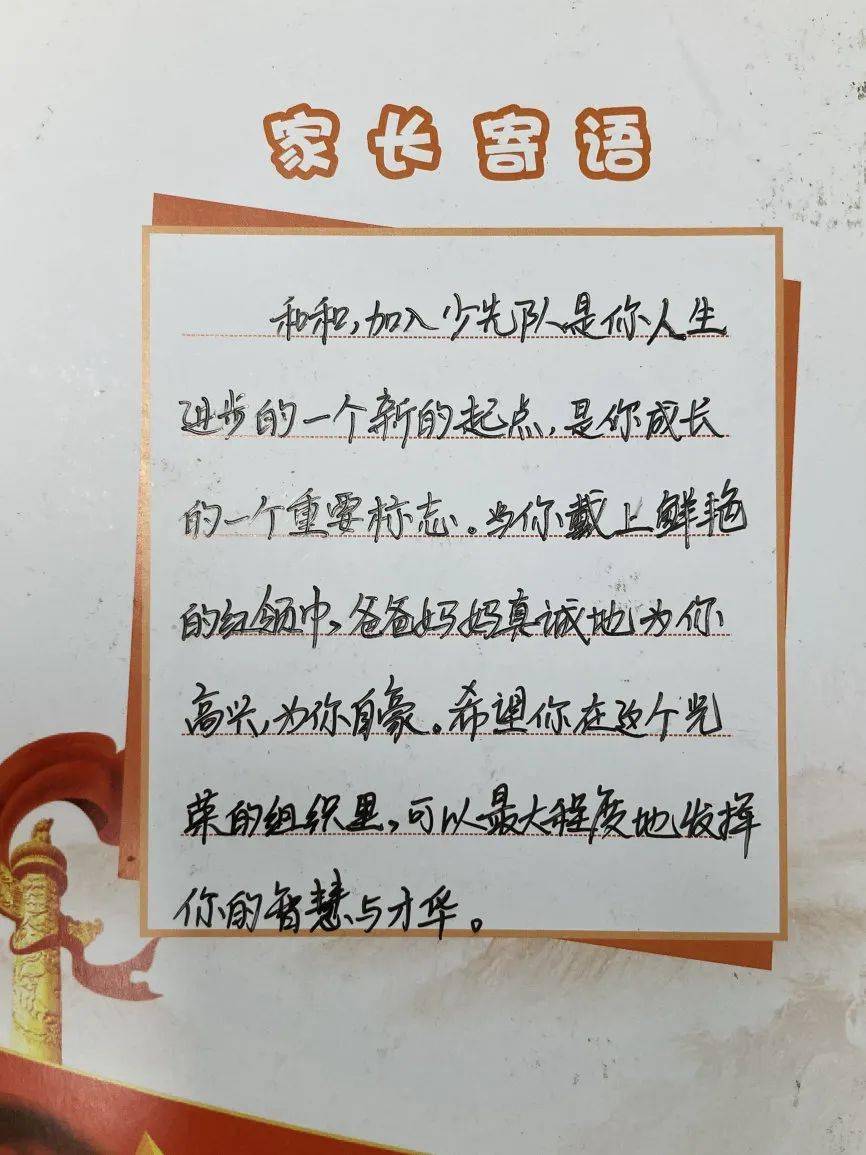 家长寄语
和和,加入少先队是你人生
进步的一个新的起点,是你成长
的一个重要标志。当你戴上鲜艳
的红领巾,爸爸妈妈真诚地为你
高兴,为你自豪。希望你在这个光
荣的组织里,可以最大程度地发挥
你的智慧与才华。